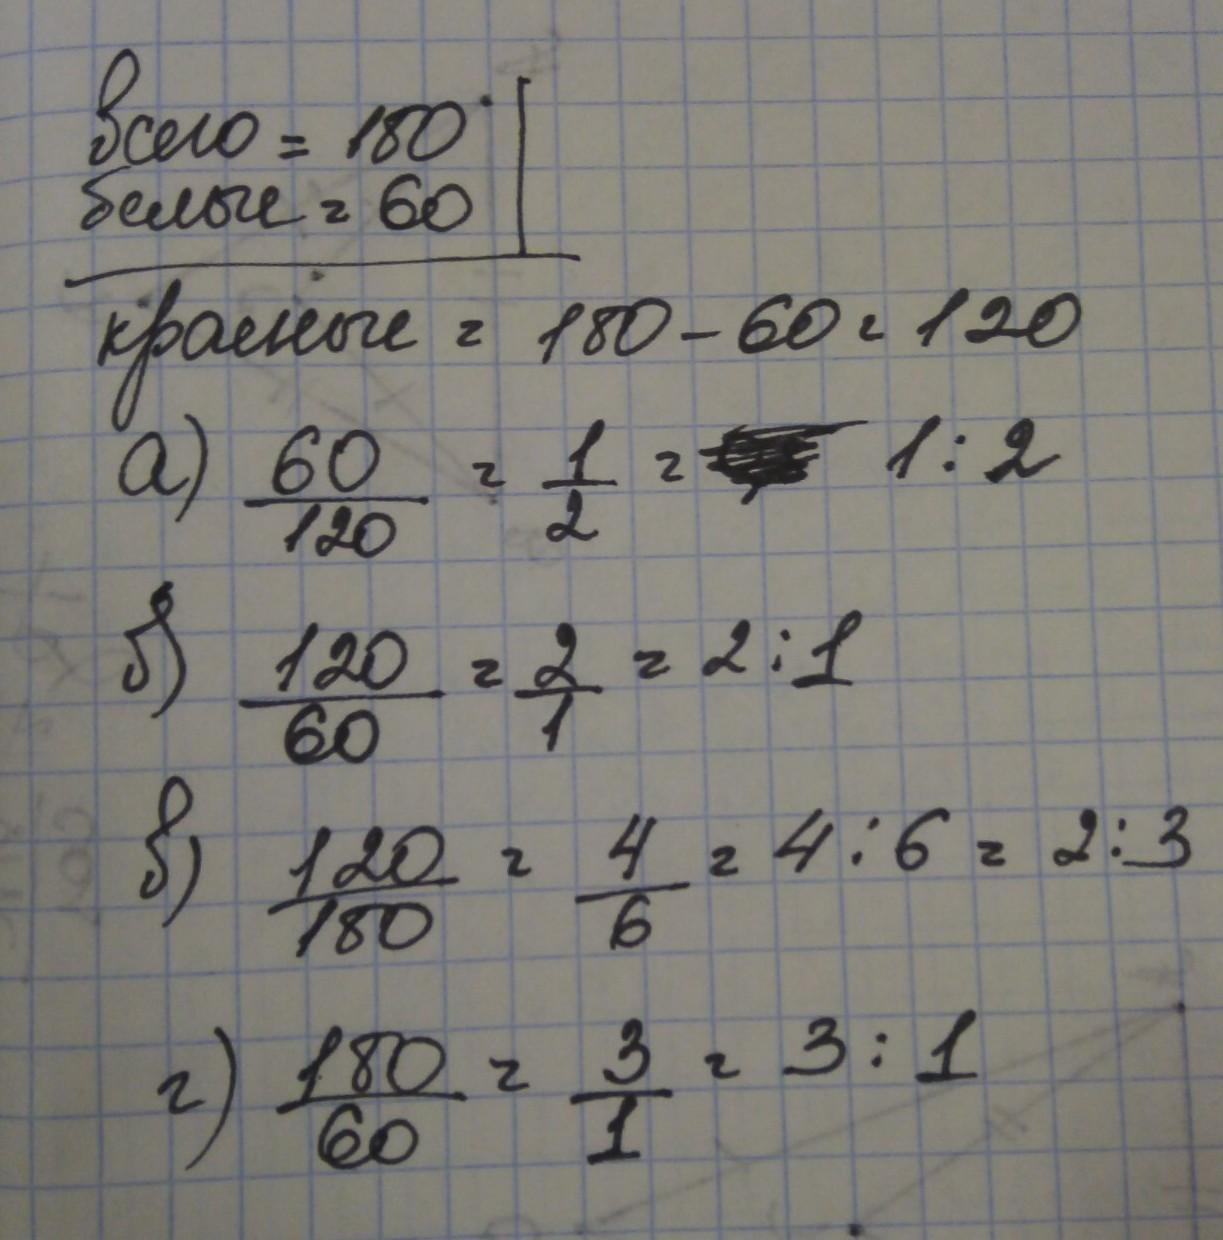 всего = 180
белые = 60
красные = 180 - 60 = 120
а) 60/120 = 1/2 = 1:2
б) 120/60 = 2/1 = 2:1
в) 120/180 = 4/6 = 4:6 = 2:3
г) 180/60 = 3/1 = 3:1